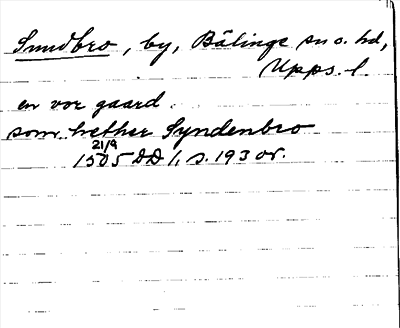 Sundbro, by, Bälinge sn o. hd,
Upps. l.
en vor gaard
som hether Syndenbro
21/9
1505 DD 1, s. 193 or.